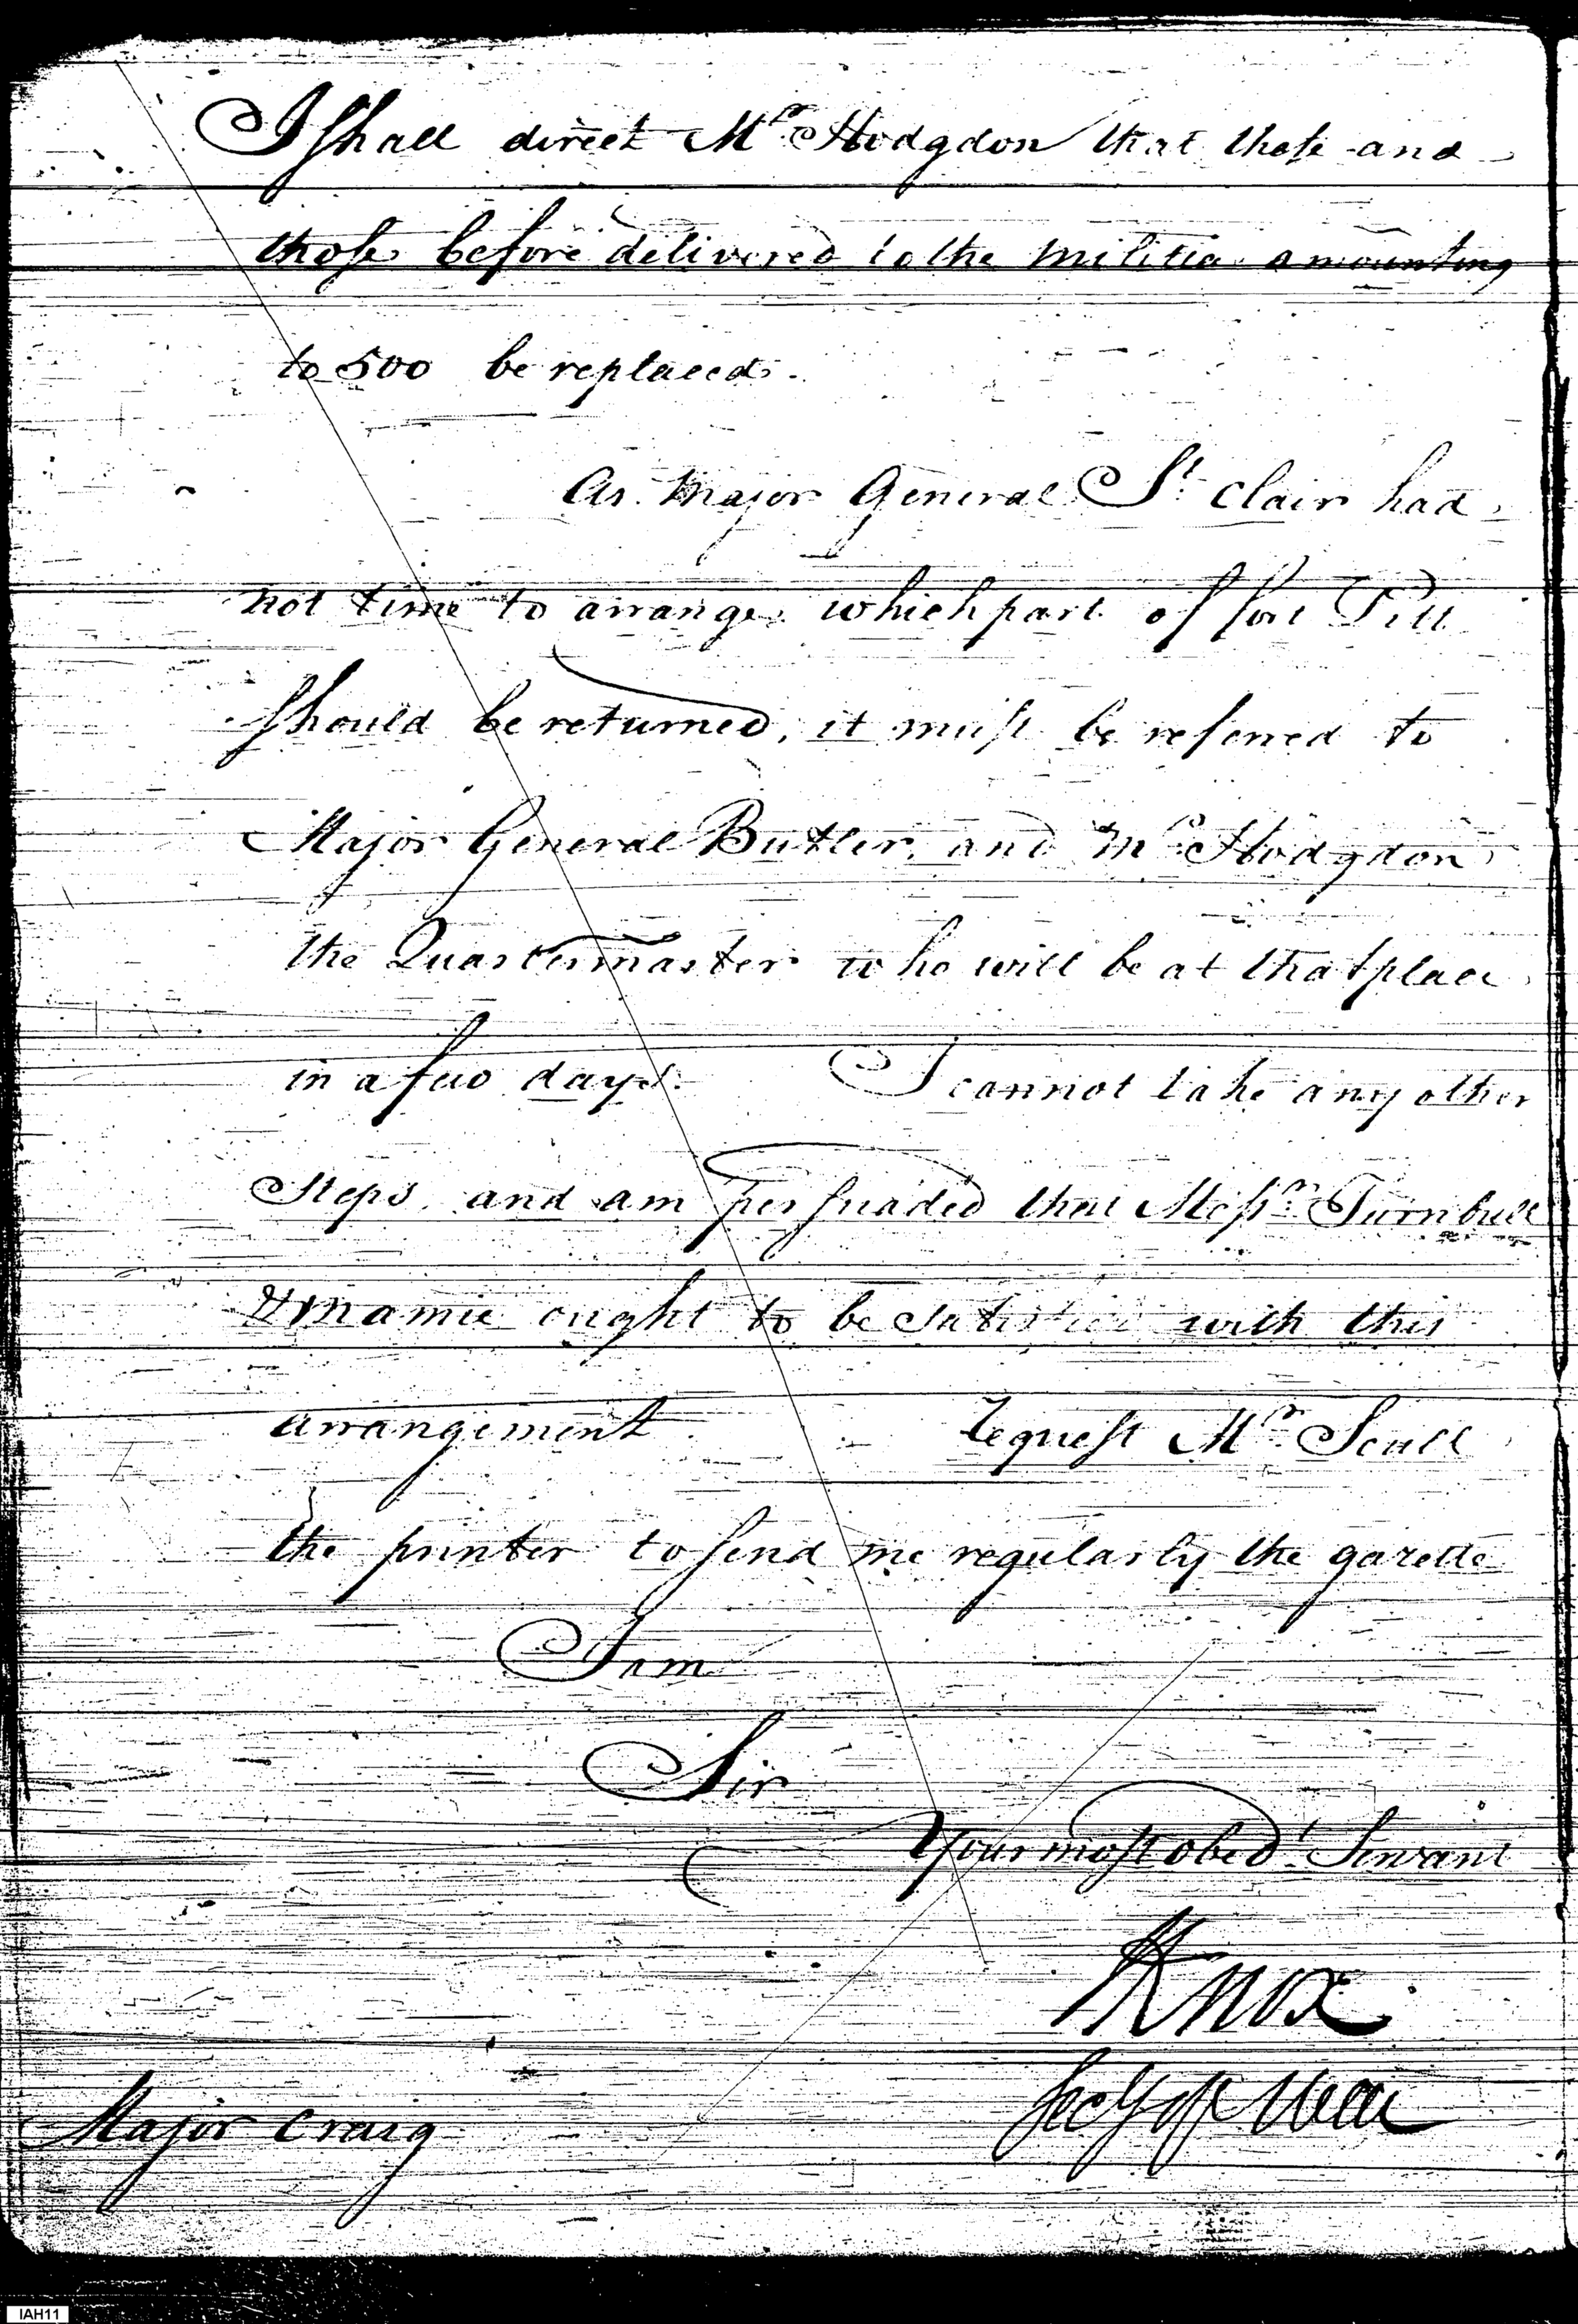 I shall direct Mr. Hodgdon that those and
those before delivered to the militia amounting
to 500 be replaced.
As Major General St. Clair had
not time to arrange which part of fort Pitt
should be returned, it must be referred to
Major General Butler, and Mr. Hodgdon
the Quartermaster who will be at that place
in a few days. I cannot take any other
Steps, and am persuaded that Messrs. Turnbull
& Mamie ought to be Satisfied with this
arrangement. Request Mr. Scull
the printer to send me regularly the gazette
I am
Sir
Your most obedt. Servant
HKnox
Secy of War
Major Craig
IAH11